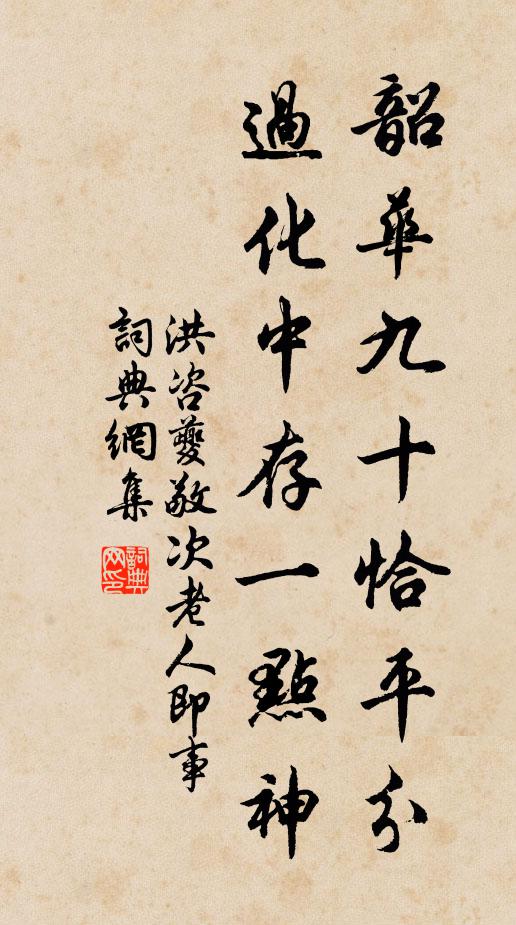 韶華九十恰平分
過化中存一點神
洪咨夔敬次老人即事
詞典網集
詞典網印